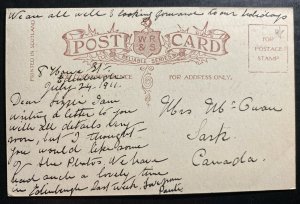 We are all well & looking forward to our holidays
PRINTED IN SCOTLAND
POST CARD
W R & S
RELIABLE SERIES
FOR ADDRESS ONLY.
FOR
POSTAGE
STAMP
5 Howe St
Edinburgh
July 24. 1911.
Dear Lizzie I am
writing a letter to you
with all details very
soon, but I thought
you would like some
of the Photos. We have
had such a lovely time
in Edinburgh last week.
Mrs McEwan
Sark
Canada.